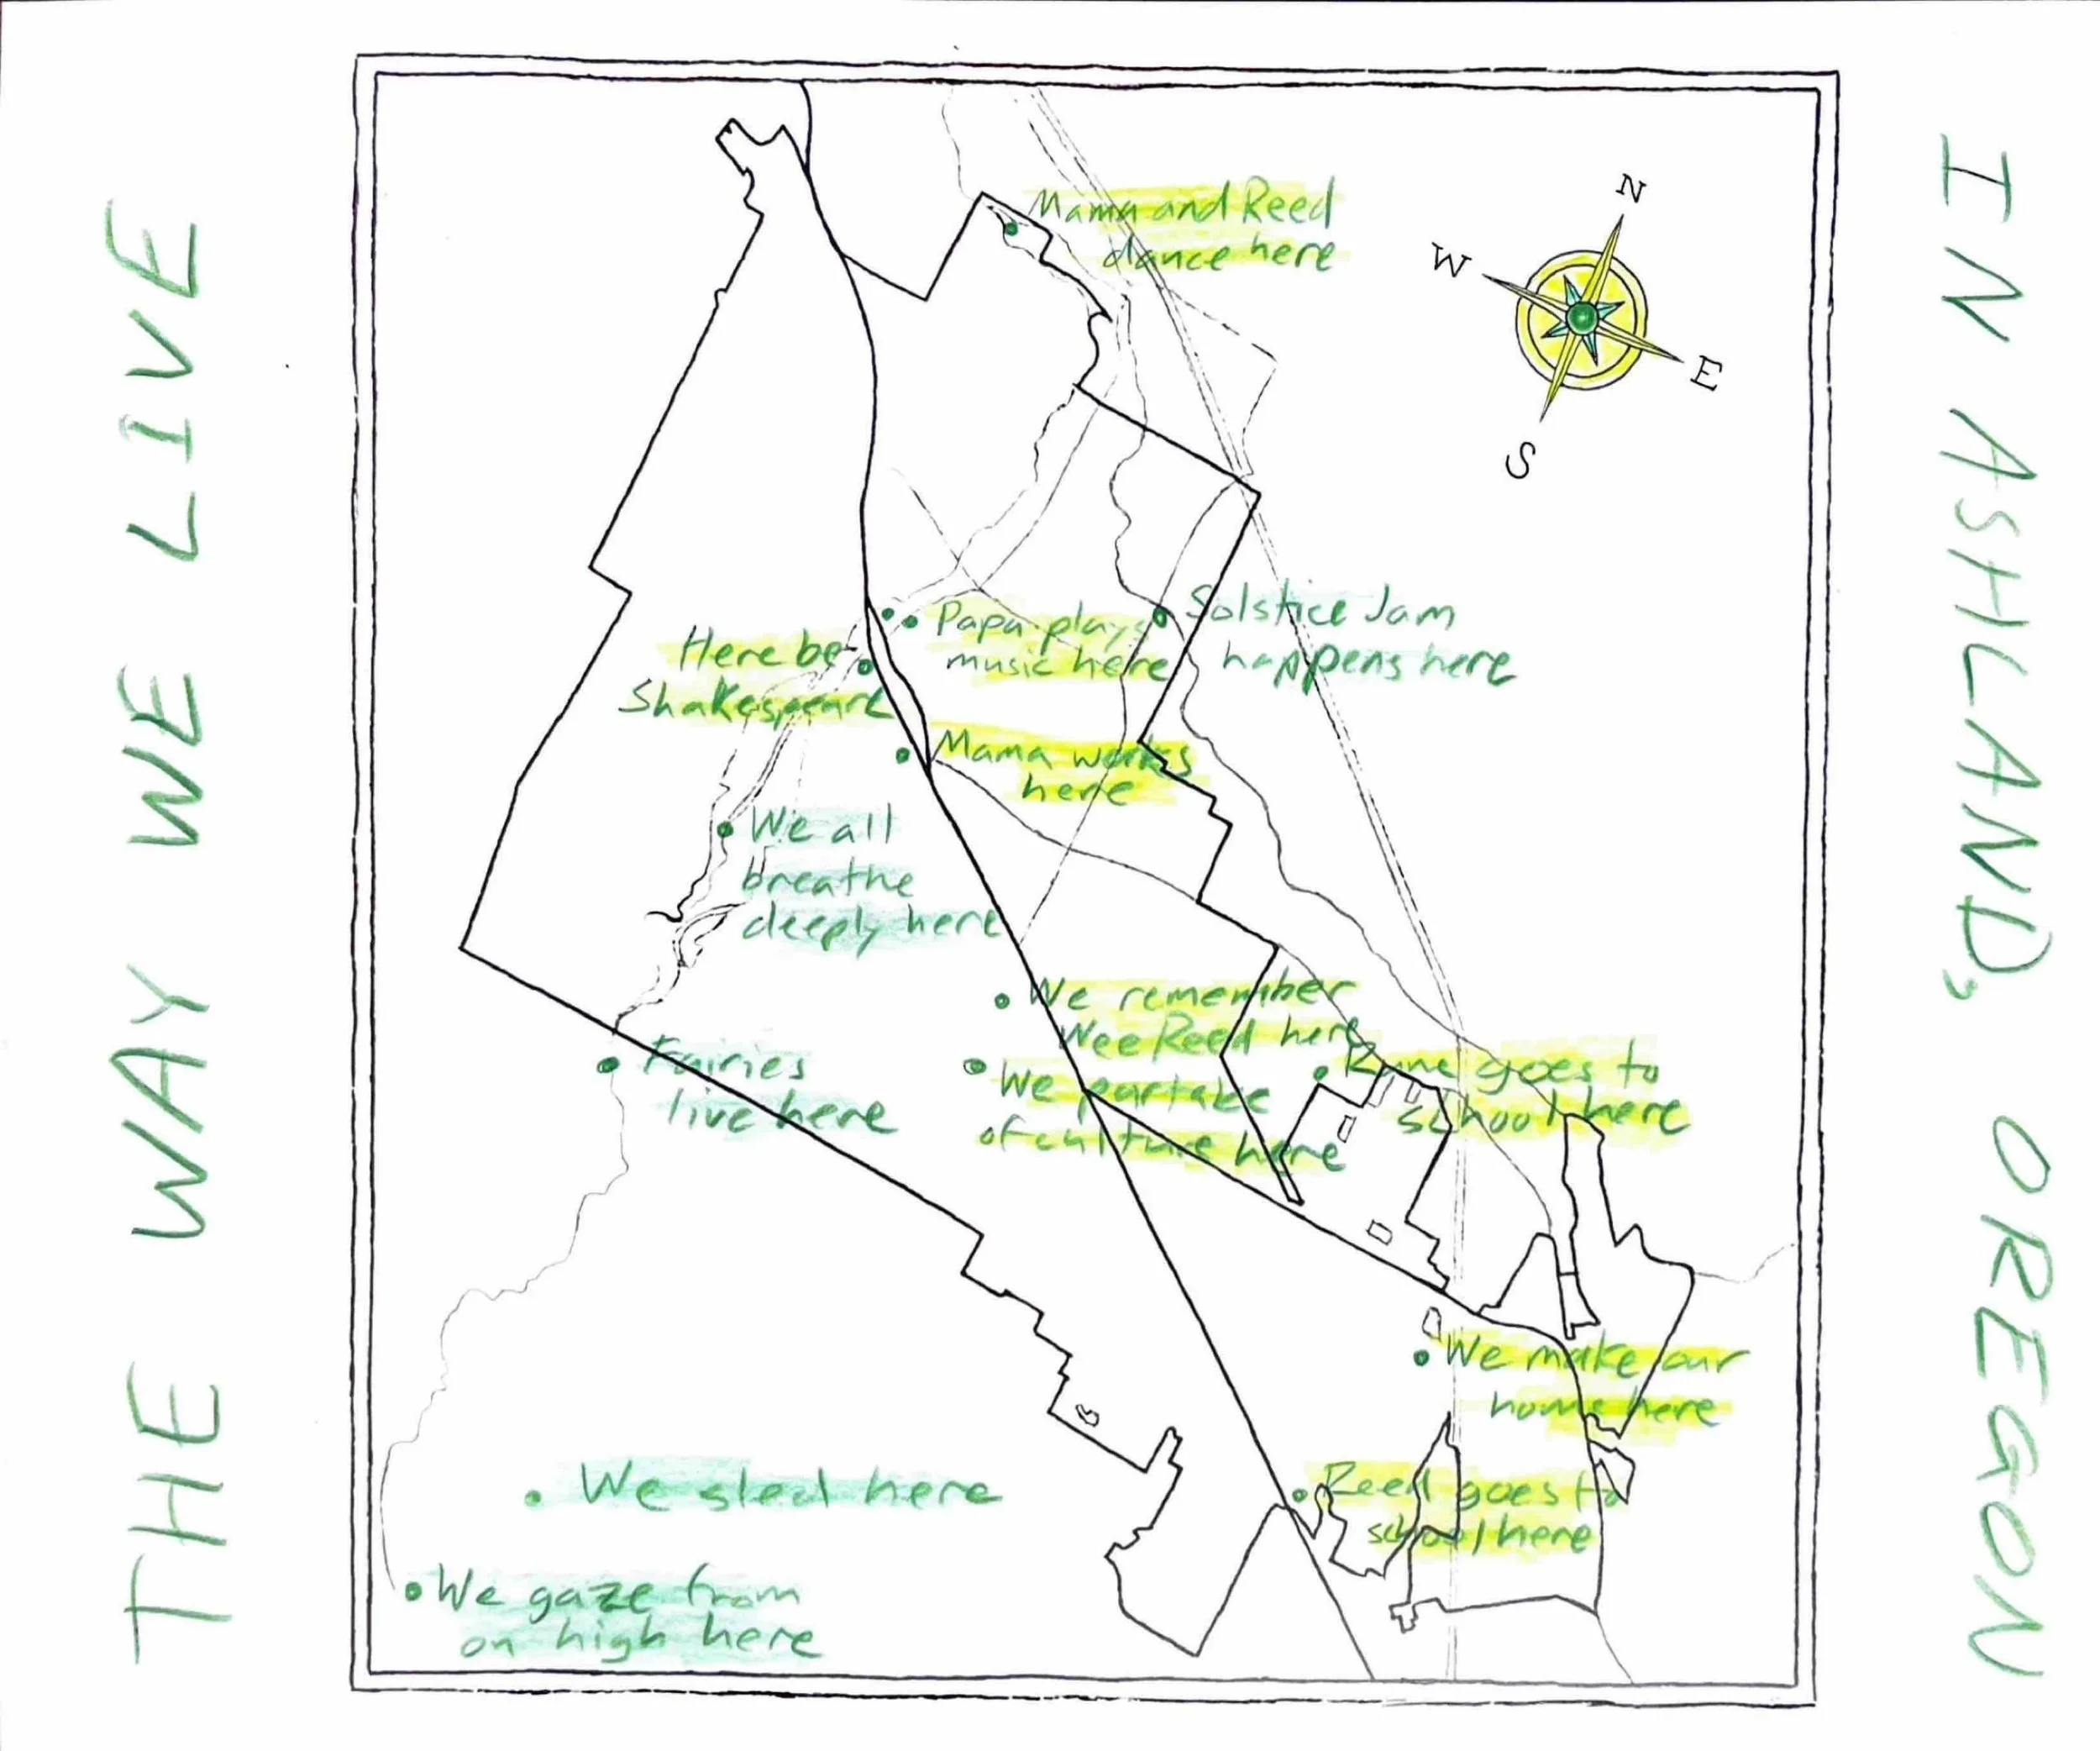 THE WAY WE LIVE
IN ASHLAND, OREGON
N
W
E
S
Mama and Reed
dance here
Papa plays
music here
Solstice Jam
happens here
Here be
Shakespeare
Mama works
here
We all
breathe
deeply here
We remember
Wee Reed here
Fairies
live here
We partake
of culture here
goes to
school here
We make our
home here
Reed goes to
school here
We sled here
We gaze from
on high here